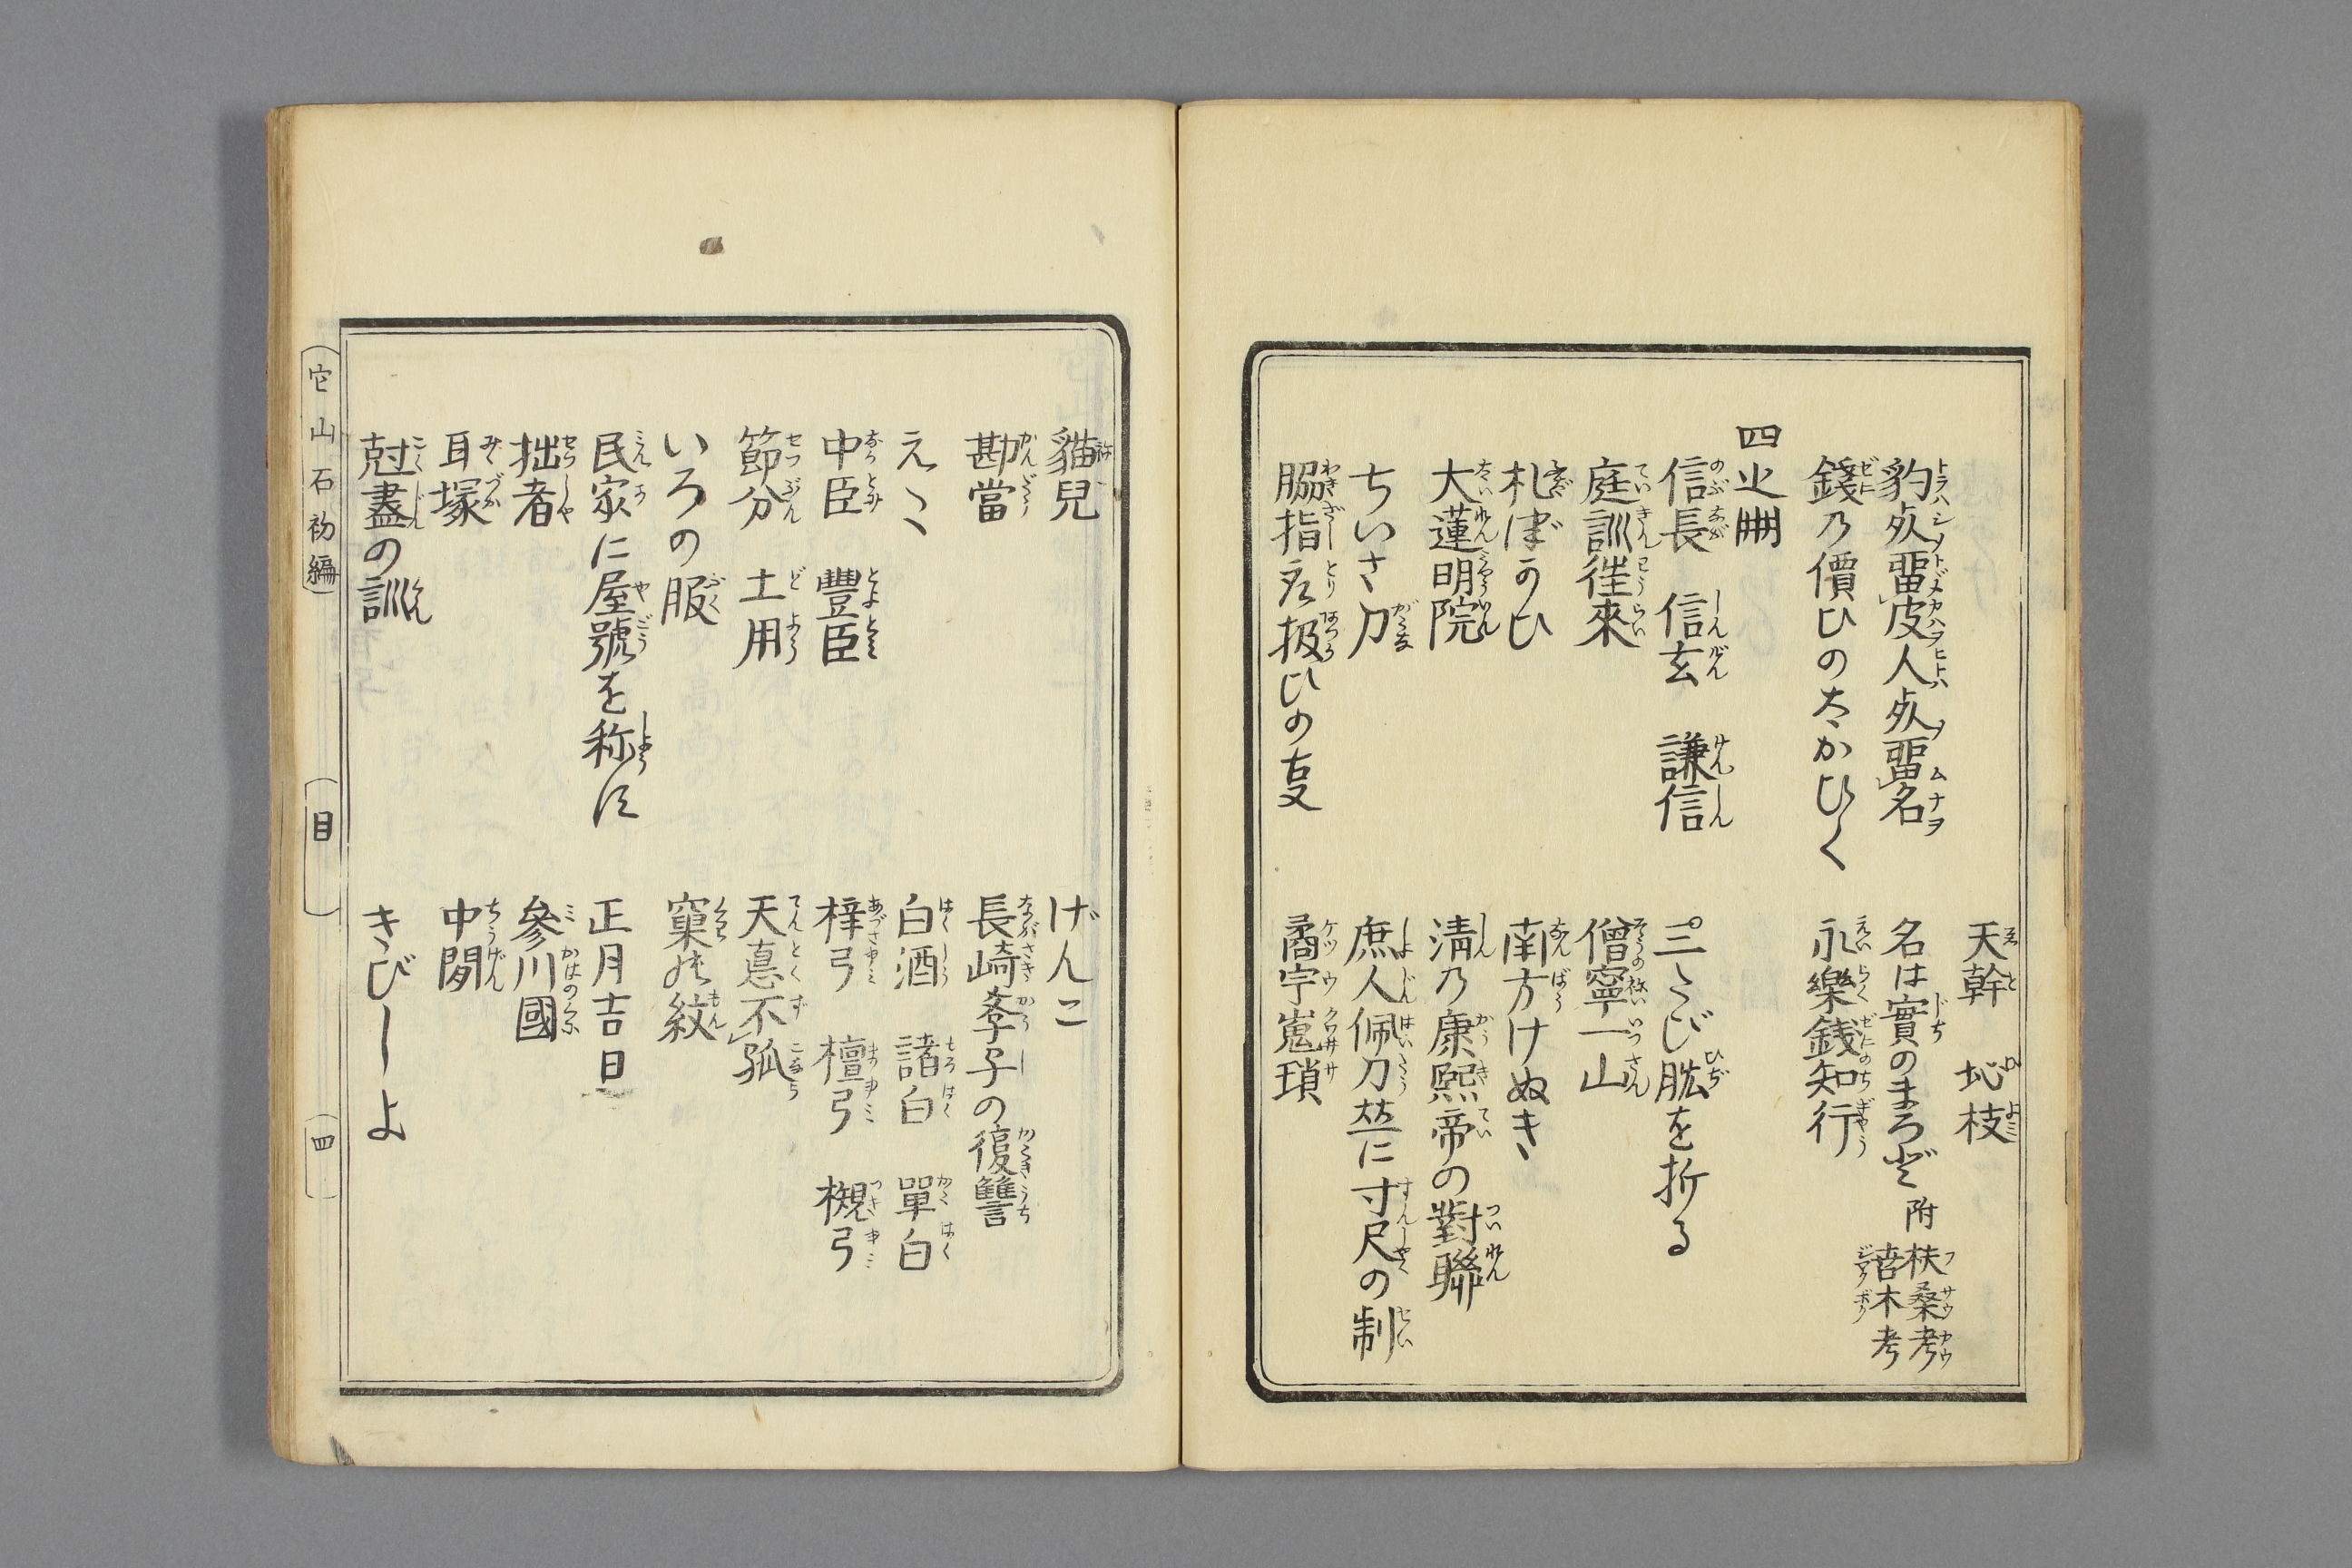 天幹　地枝
豹死畱皮人死畱名
名は實のまろど　附　扶桑考
若木考
錢乃價ひのたかひく
永樂銭知行
四止冊
信長　信玄　謙信
三たび肱を折る
庭訓往來
僧寧一山
札づかひ
南方けぬき
大蓮明院
淸乃康熙帝の對聯
ちいさ刀
庶人佩刀並に寸尺の制
脇指を扱ひの事
矞宇嵬瑣
貓兒
げんこ
勘當
長崎孝子の復讐
えゝ
白酒　諸白　單白
中臣　豐臣
梓弓　檀弓　槻弓
節分　土用
天悳不孤
いろの服
窠の紋
民家に屋號を称す
正月吉日
拙者
參川國
耳塚
中間
尅盡の訓
きびしよ
它山石初編
目
四